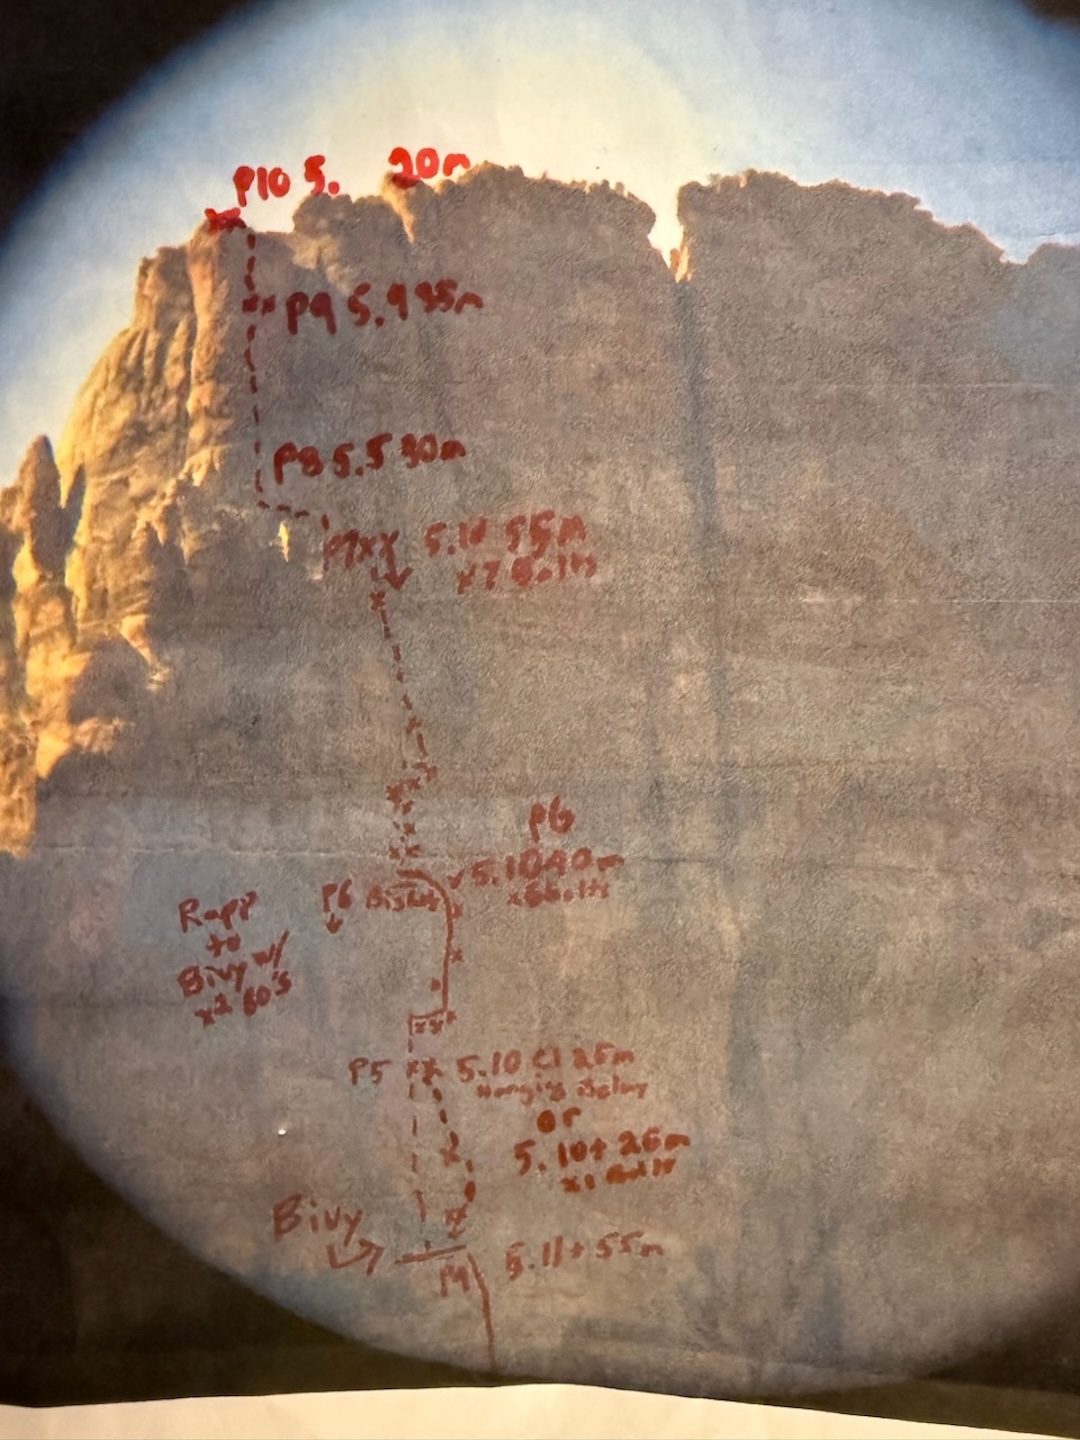 P10 5. 20m
P9 5.9 35m
P8 5.5 30m
P7xx 5.10 55m
x7 Bolts
P6
5.10 40m
x6 Bolts
P6
Rapp
to
Bivy w/
x2 60's
P5 xx 5.10 C1 25m
Hanging Belay
or
5.10+ 25m
x1 Bolts
Bivy
P4 5.11+ 55m